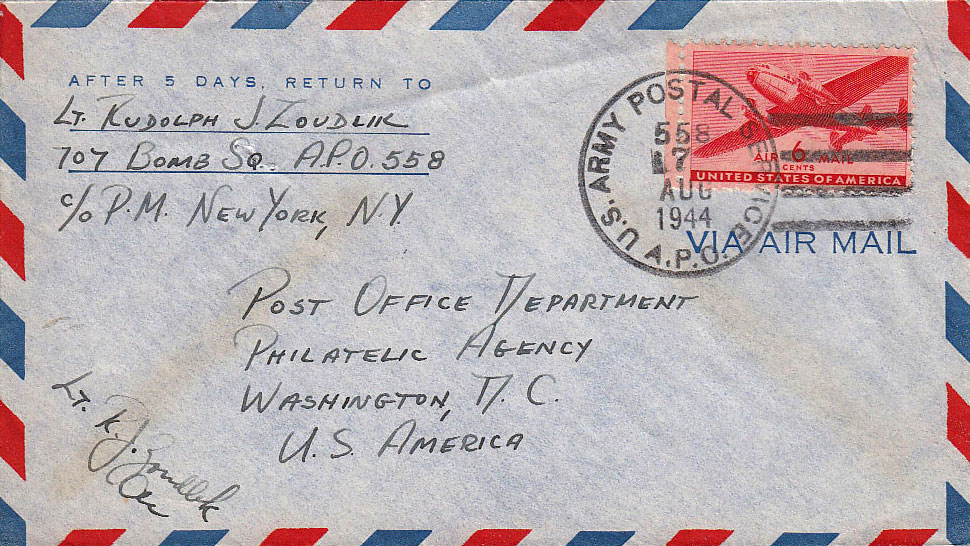 AFTER 5 DAYS, RETURN TO
LT. RUDOLPH J. ZOUDLIK
707 BOMB SQ. A.P.O. 558
c/o P.M. NEW YORK, N.Y.
U.S. ARMY POSTAL SERVICE
558
7
AUG
1944
A.P.O.
AIR 6 MAIL
CENTS
UNITED STATES OF AMERICA
VIA AIR MAIL
POST OFFICE DEPARTMENT
PHILATELIC AGENCY
WASHINGTON, D.C.
U.S. AMERICA
Lt. R.J. Zoudlik